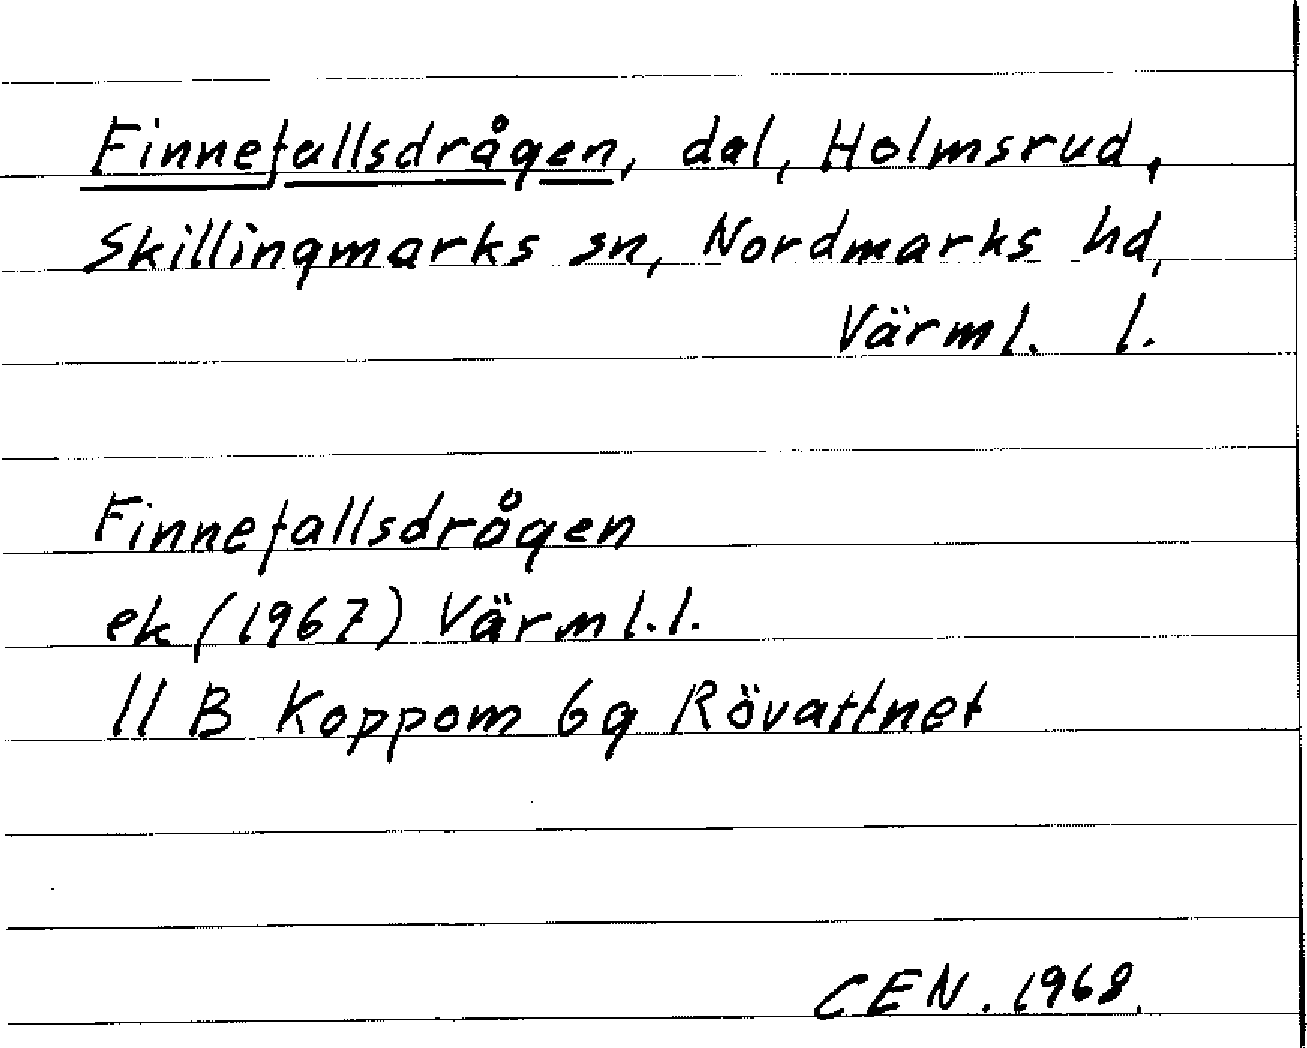 Finnefallsdrågen, dal, Holmsrud,
Skillingmarks sn, Nordmarks hd,
Värml. l.
Finnefallsdrågen
ek (1967) Värml.l.
11 B Koppom 6g Rövattnet
CEN. 1968.